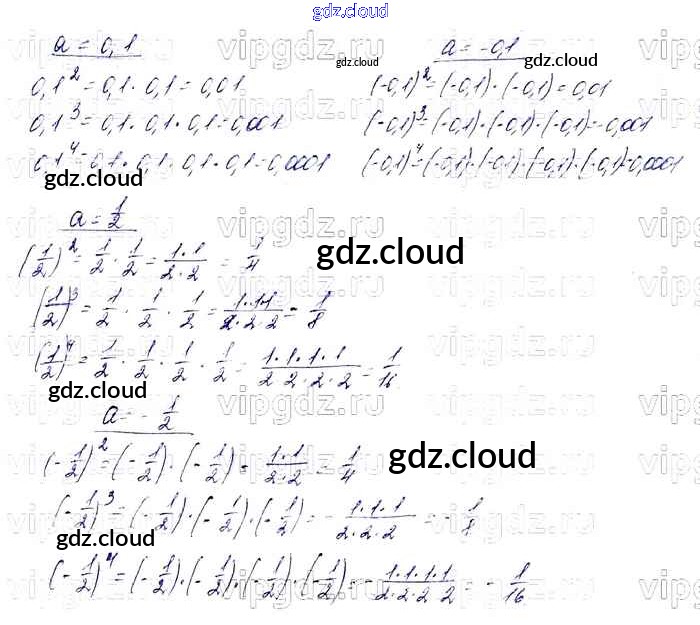 gdz.cloud
a = 0,1
0,1² = 0,1 · 0,1 = 0,01
0,1³ = 0,1 · 0,1 · 0,1 = 0,001
0,1⁴ = 0,1 · 0,1 · 0,1 · 0,1 = 0,0001
gdz.cloud
a = -0,1
gdz.cloud
gdz.cloud
(-0,1)² = (-0,1) · (-0,1) = 0,01
(-0,1)³ = (-0,1) · (-0,1) · (-0,1) = -0,001
(-0,1)⁴ = (-0,1) · (-0,1) · (-0,1) · (-0,1) = 0,0001
a = 1/2
(1/2)² = 1/2 · 1/2 = 1·1/2·2 = 1/4
gdz.cloud
(1/2)³ = 1/2 · 1/2 · 1/2 = 1·1·1/2·2·2 = 1/8
(1/2)⁴ = 1/2 · 1/2 · 1/2 · 1/2 = 1·1·1·1/2·2·2·2 = 1/16
gdz.cloud
a = -1/2
(-1/2)² = (-1/2) · (-1/2) = 1·1/2·2 = 1/4
gdz.cloud
(-1/2)³ = (-1/2) · (-1/2) · (-1/2) = -1·1·1/2·2·2 = -1/8
gdz.cloud
(-1/2)⁴ = (-1/2) · (-1/2) · (-1/2) · (-1/2) = -1·1·1·1/2·2·2·2 = -1/16
vipgdz.ru